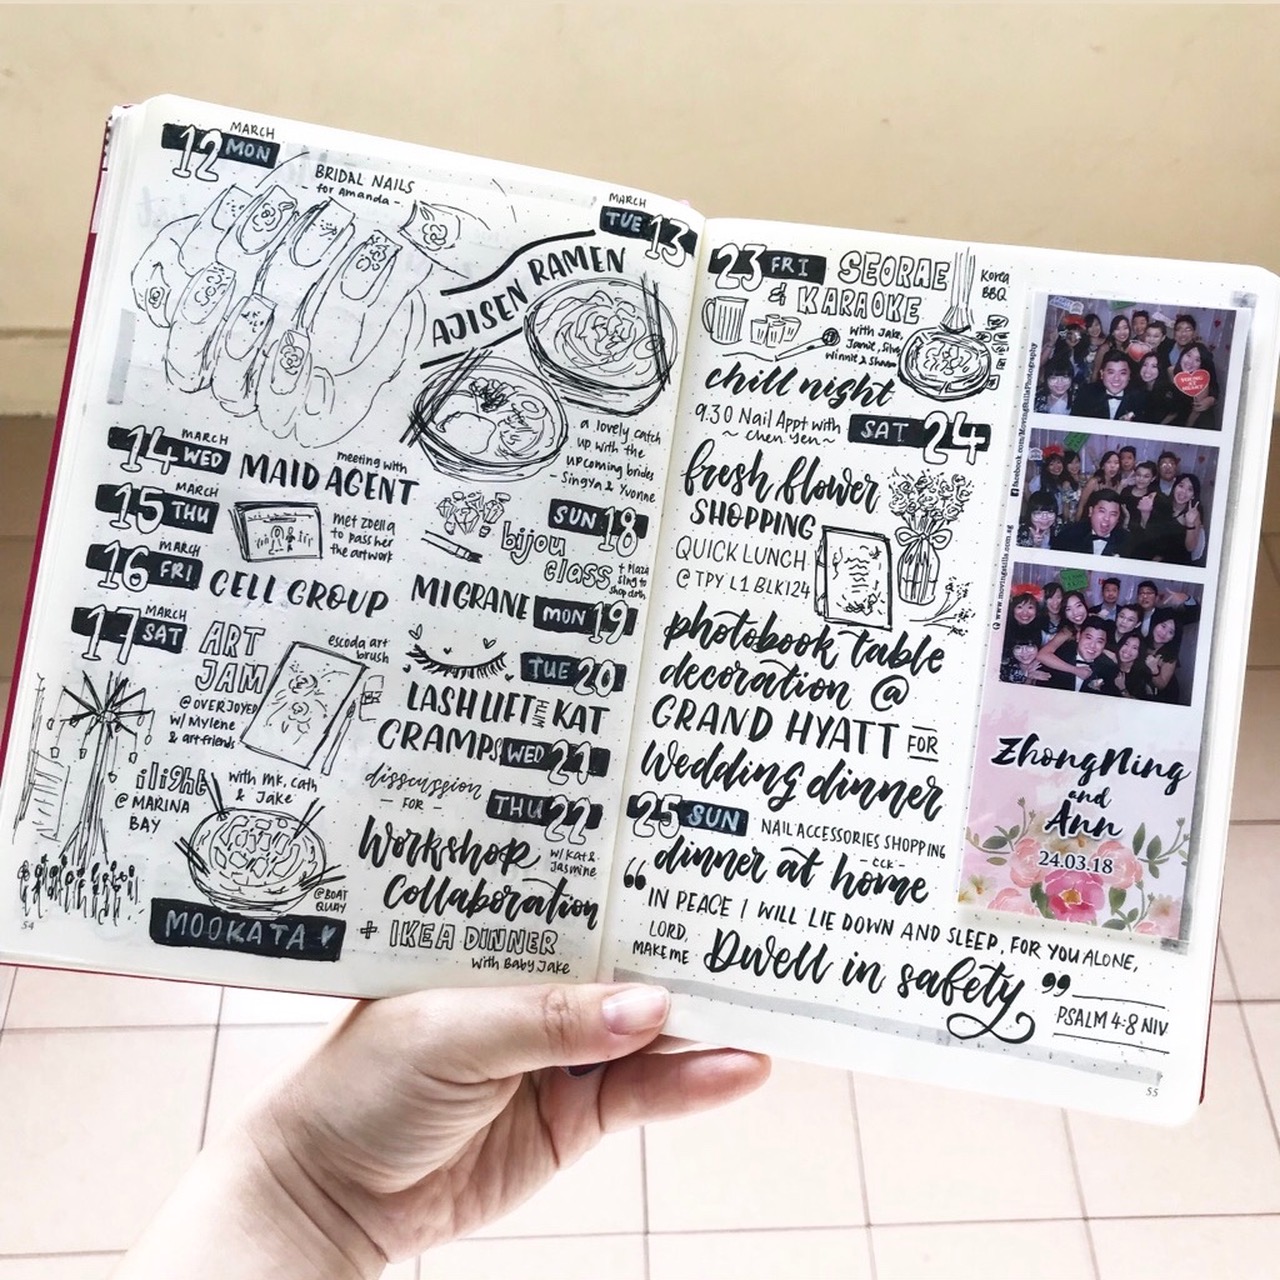 MARCH
12 MON
BRIDAL NAILS
for Amanda -
MARCH
TUE 13
AJISEN RAMEN
a lovely catch
up with the
upcoming brides
- Singya & Yvonne
MARCH
14 WED
meeting with
MAID AGENT
MARCH
15 THU
met Zoella
to pass her
the artwork
MARCH
16 FRI
CELL GROUP
MARCH
17 SAT
ART
JAM
@ OVERJOYED
w/ Mylene
& art friends
escoda art
brush
ilight
@ MARINA
BAY
with MK, Cath
& Jake
@ BOAT
QUAY
MOOKATA
SUN 18
bijou
class
+ Plaza
Sing to
shop cloth
MIGRANE
MON 19
TUE 20
LASH LIFT
KAT
CRAMPS
WED 21
disscussion
- FOR -
THU 22
w/ Kat &
Jasmine
Workshop
Collaboration
+ IKEA DINNER
with Baby Jake
54
23 FRI
SEORAE
& KARAOKE
Korea
BBQ
with Jake,
Jamie, Silvs
Winnie & Shawn
chill night
9.30 Nail Appt with
~ Chen Yen ~
SAT 24
fresh flower
SHOPPING
QUICK LUNCH
@ TPY L1 BLK124
photobook table
decoration @
GRAND HYATT FOR
Wedding dinner
25 SUN
NAIL ACCESSORIES SHOPPING
- CCK -
dinner at home
“ IN PEACE I WILL LIE DOWN AND SLEEP, FOR YOU ALONE,
LORD,
MAKE ME
Dwell in safety ”
PSALM 4:8 NIV
55
facebook.com/MovingStillsPhotography
www.movingstills.com.sg
YOUNG
AT
HEART
ZhongNing
and
Ann
24.03.18